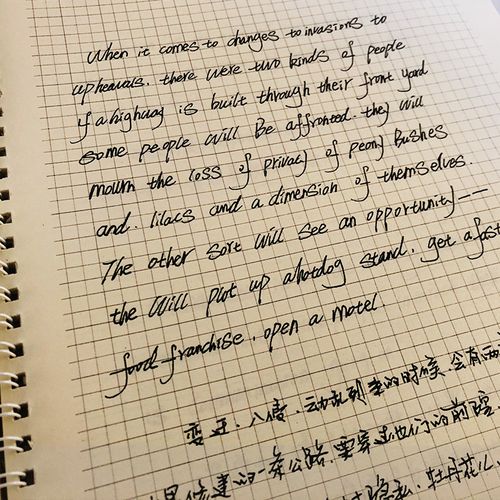 When it comes to changes to invasions to
upheavals. there were two kinds of people
if a highway is built through their front yard
some people will Be affronted. they will
mourn the loss of privacy of peony Bushes
and. lilacs and a dimension of themselves.
The other sort will see an opportunity——
the Will plot up a hotdog stand. get a fast
food franchise. open a motel.
变迁、入侵、动乱到来的时候、会有两
果修建的一条公路、要穿过他们的前院
隐私、牡丹花